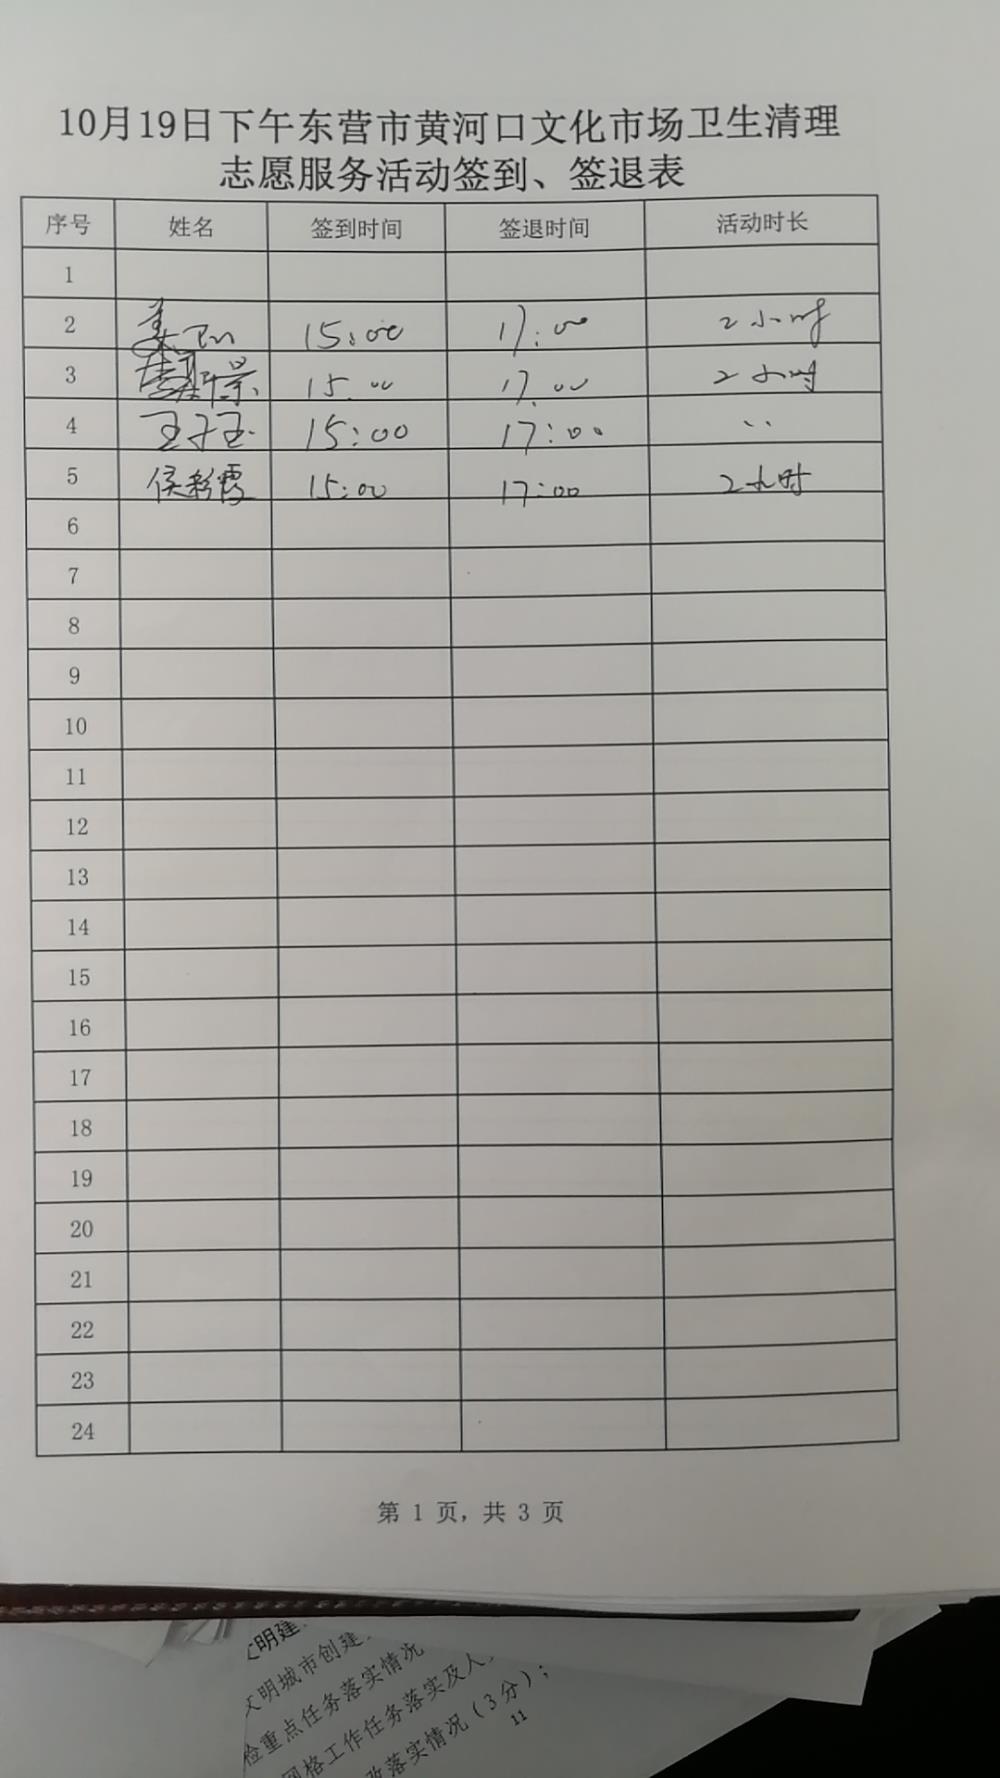 10月19日下午东营市黄河口文化市场卫生清理
志愿服务活动签到、签退表
序号 姓名 签到时间 签退时间 活动时长
1
2 姜 15:00 17:00 2小时
3 15:00 17:00 2小时
4 王子玉 15:00 17:00 ··
5 侯彩霞 15:00 17:00 2小时
6
7
8
9
10
11
12
13
14
15
16
17
18
19
20
21
22
23
24
第 1 页，共 3 页
文明建
文明城市创建
检重点任务落实情况
网格工作任务落实及人
改落实情况（3分）；
11